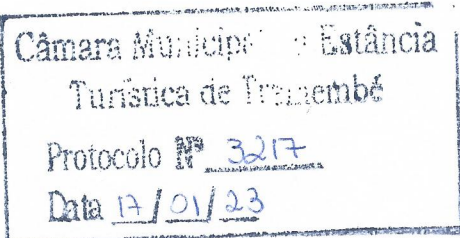 Câmara Municipal Estância
Turística de Tremembé
Protocolo Nº 3217
Data 17/01/23